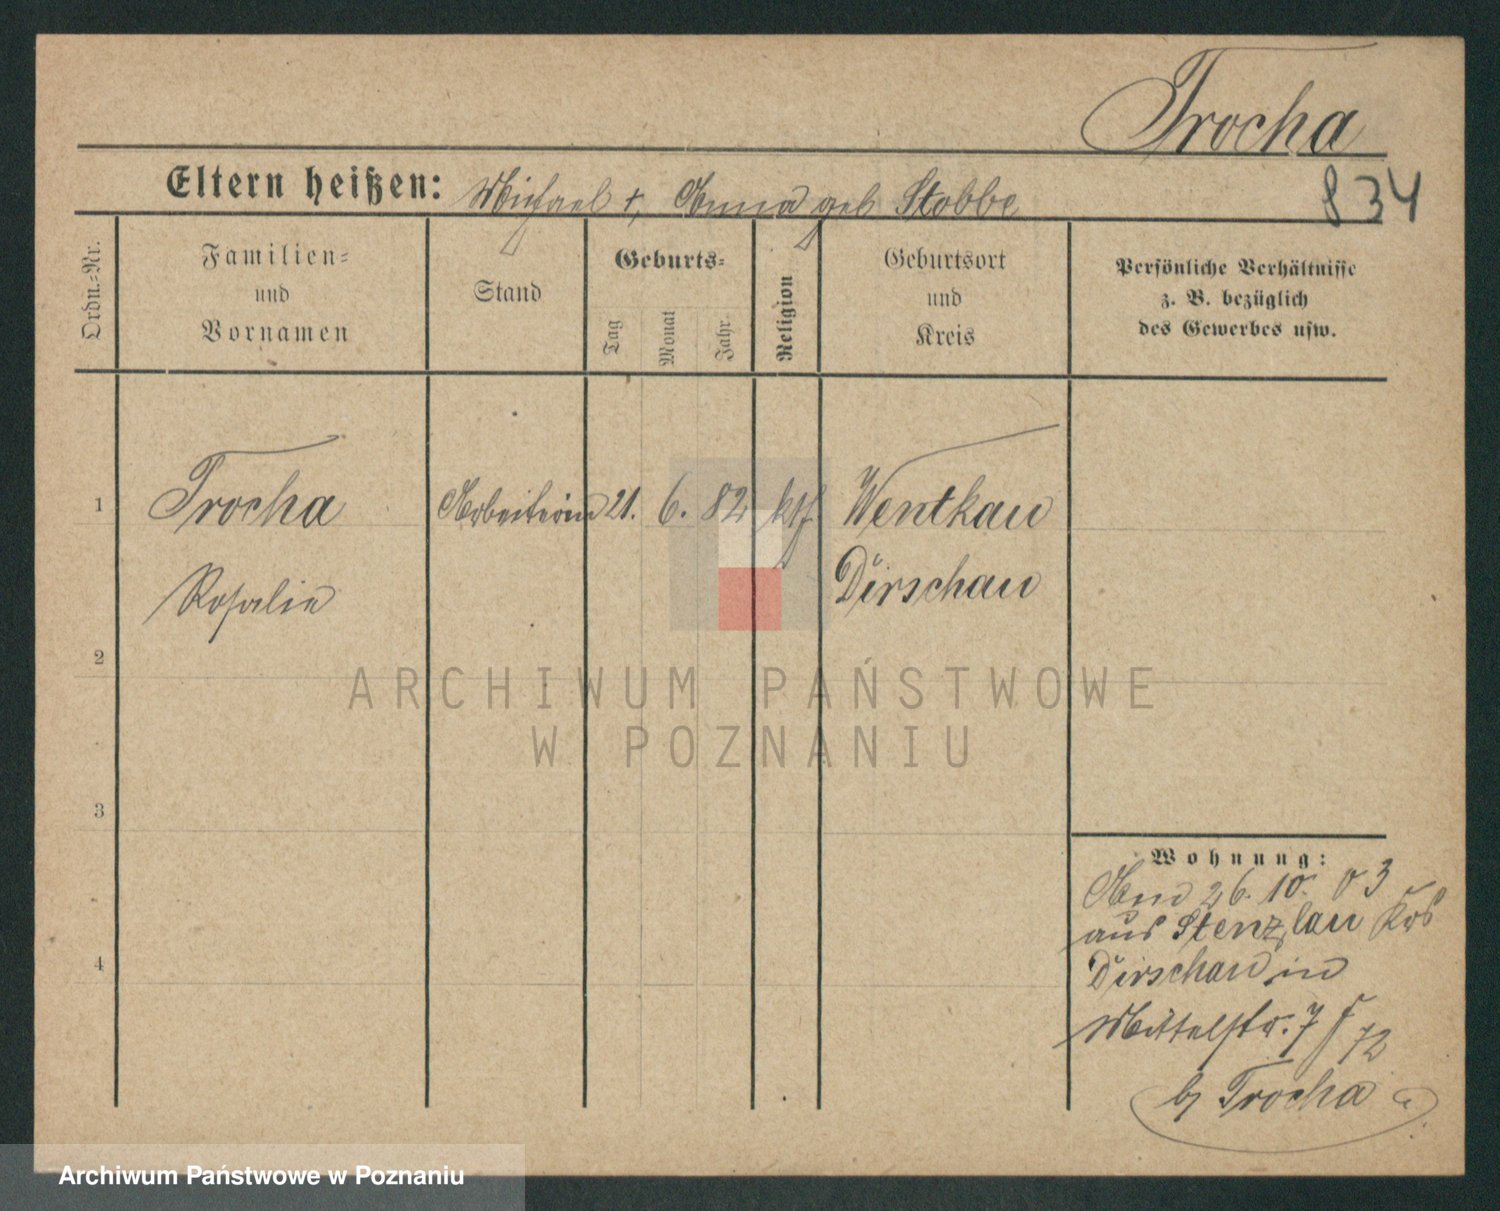 Trocha
834
Eltern heißen: Michael †, Anna geb Stobbe
Ordn.-Nr.
Familien-
und
Vornamen
Stand
Geburts-
Tag
Monat
Jahr
Religion
Geburtsort
und
Kreis
Persönliche Verhältnisse
z. B. bezüglich
des Gewerbes usw.
1
Trocha Arbeiterin 21. 6. 82 kth Wentkau
Rosalie
Dirschau
2
3
4
Wohnung:
26. 10. 03
aus Stenzlau Krs
Dirschau in
Mittelstr. 7
b/ Trocha
ARCHIWUM PAŃSTWOWE
W POZNANIU
Archiwum Państwowe w Poznaniu